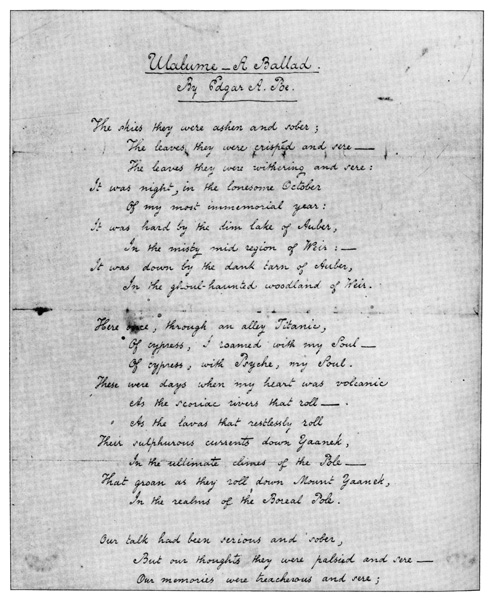 Ulalume – A Ballad.
By Edgar A. Poe.
The skies they were ashen and sober;
The leaves they were crispéd and sere —
The leaves they were withering and sere:
It was night, in the lonesome October
Of my most immemorial year:
It was hard by the dim lake of Auber,
In the misty mid region of Weir: —
It was down by the dank tarn of Auber,
In the ghoul-haunted woodland of Weir.
Here once, through an alley Titanic,
Of cypress, I roamed with my Soul —
Of cypress, with Psyche, my Soul.
These were days when my heart was volcanic
As the scoriac rivers that roll — .
As the lavas that restlessly roll
Their sulphurous currents down Yaanek,
In the ultimate climes of the Pole —
That groan as they roll down Mount Yaanek,
In the realms of the Boreal Pole.
Our talk had been serious and sober,
But our thoughts they were palsied and sere —
Our memories were treacherous and sere;